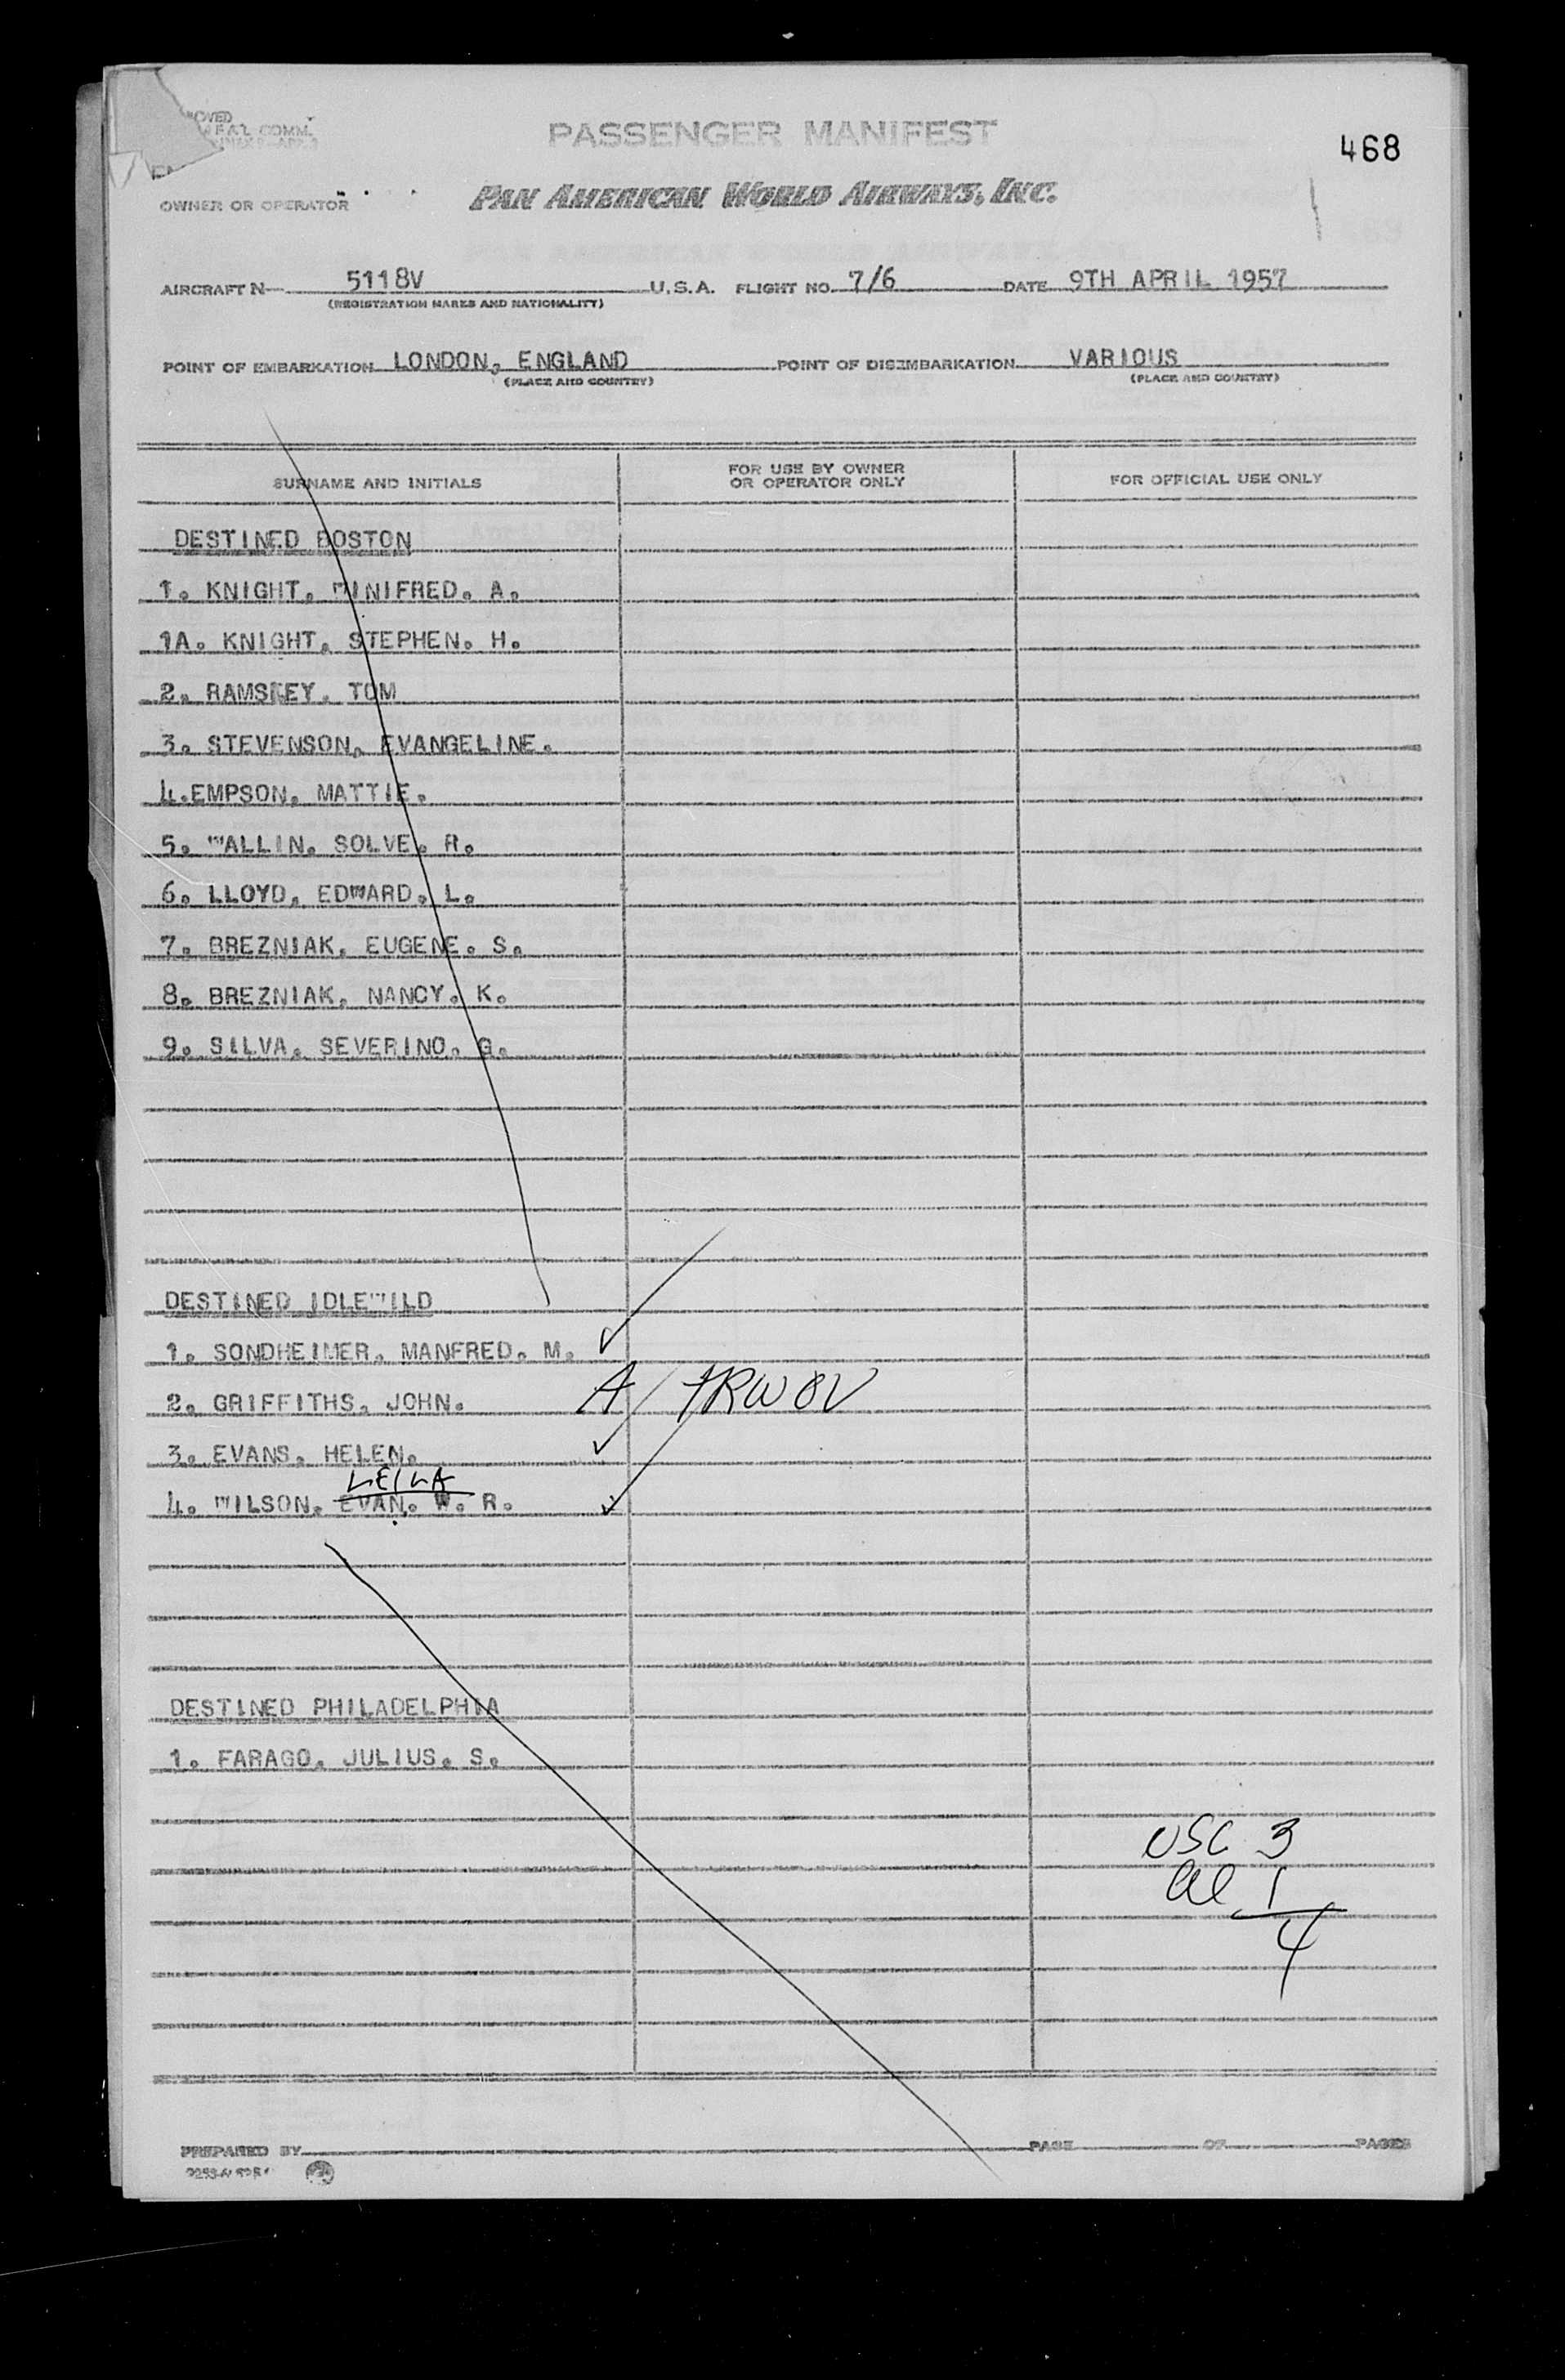 468
OVED
COMM.
PASSENGER MANIFEST
OWNER OR OPERATOR
PAN AMERICAN WORLD AIRWAYS, INC.
AIRCRAFT N 5118V U.S.A. FLIGHT NO. 7/6 DATE 9TH APRIL 1957
(REGISTRATION MARKS AND NATIONALITY)
POINT OF EMBARKATION LONDON, ENGLAND POINT OF DISEMBARKATION VARIOUS
(PLACE AND COUNTRY) (PLACE AND COUNTRY)
SURNAME AND INITIALS FOR USE BY OWNER OR OPERATOR ONLY FOR OFFICIAL USE ONLY
DESTINED BOSTON
1. KNIGHT. WINIFRED. A.
1A. KNIGHT. STEPHEN. H.
2. RAMSKEY. TOM
3. STEVENSON. EVANGELINE.
4.EMPSON. MATTIE.
5. WALLIN. SOLVE. R.
6. LLOYD. EDWARD. L.
7. BREZNIAK. EUGENE. S.
8. BREZNIAK. NANCY. K.
9. SILVA. SEVERINO. G.
DESTINED IDLEWILD
1. SONDHEIMER. MANFRED. M. ✓
2. GRIFFITHS. JOHN. A/
3. EVANS. HELEN. ✓
LEILA
4. WILSON. EVAN. W. R. ✓
DESTINED PHILADELPHIA
1. FARAGO. JULIUS. S.
USC 3
al 1
4
PREPARED BY PAGE OF PAGES